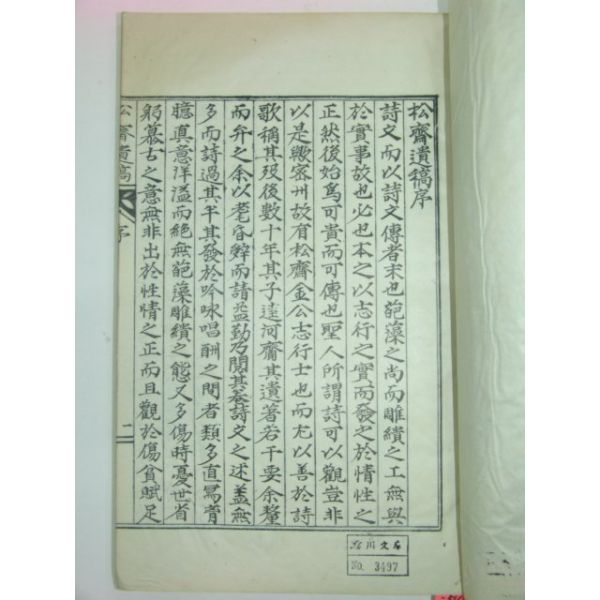 松齋遺稿序
詩文而以詩文傳者末也葩藻之尚而雕繢之工無與
於實事故也必也本之以志行之實而發之於情性之
正然後始爲可貴而可傳也聖人所謂詩可以觀豈非
以是歟密州故有松齋金公志行士也而尤以善於詩
歌稱其歿後數十年其子遠河齎其遺著若干要余釐
而弁之余以耄昏辭而請益勤乃閱其卷詩文之述盖無
多而詩過其半其發於吟咏唱酬之間者類多直寫胷
臆眞意洋溢而絕無葩藻雕繢之態又多傷時憂世省
躬慕古之意無非出於性情之正而且觀於傷貧賦足
松齋遺稿 序 一
文石
No. 3497